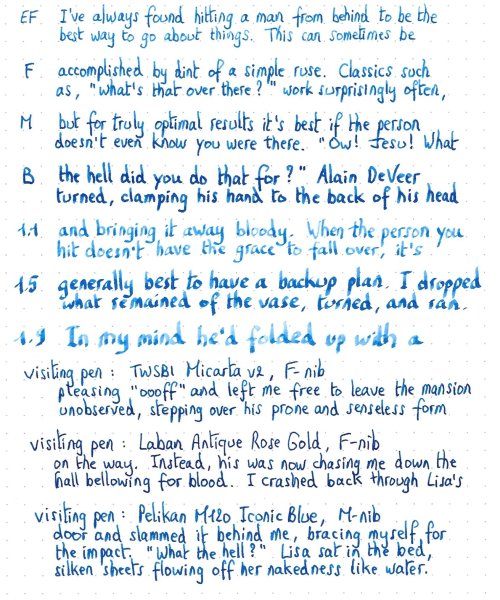 EF I've always found hitting a man from behind to be the
best way to go about things. This can sometimes be
F accomplished by dint of a simple ruse. Classics such
as, "what's that over there?" work surprisingly often,
M but for truly optimal results it's best if the person
doesn't even know you were there. "Ow! Jesu! What
B the hell did you do that for?" Alain DeVeer
turned, clamping his hand to the back of his head
1.1 and bringing it away bloody. When the person you
hit doesn't have the grace to fall over, it's
1.5 generally best to have a backup plan. I dropped
what remained of the vase, turned, and ran.
1.9 In my mind he'd folded up with a
visiting pen: TWSBI Micarta v2, F-nib
pleasing "oooff" and left me free to leave the mansion
unobserved, stepping over his prone and senseless form
visiting pen: Laban Antique Rose Gold, F-nib
on the way. Instead, his was now chasing me down the
hall bellowing for blood. I crashed back through Lisa's
visiting pen: Pelikan M120 Iconic Blue, M-nib
door and slammed it behind me, bracing myself for
the impact. "What the hell?" Lisa sat in the bed,
silken sheets flowing off her nakedness like water.